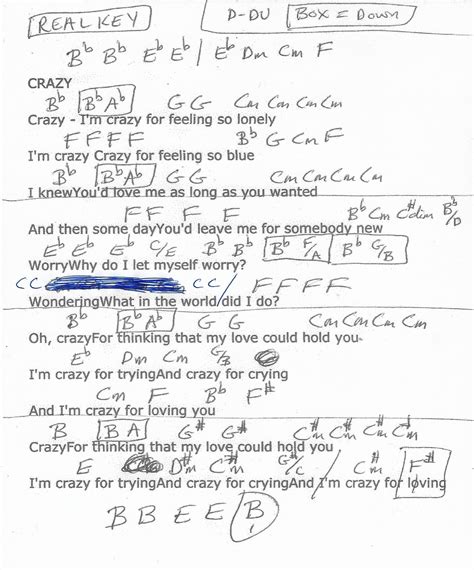 REAL KEY D-DU BOX = DOWN
B♭ B♭ E♭ E♭ / E♭ Dm Cm F
CRAZY
B♭ B♭ A♭ G G Cm Cm Cm Cm
Crazy - I'm crazy for feeling so lonely
F F F F B♭ G Cm F
I'm crazy Crazy for feeling so blue
B♭ B♭ A♭ G G Cm Cm Cm Cm
I knewYou'd love me as long as you wanted
F F F F B♭ Cm C#dim B♭/D
And then some dayYou'd leave me for somebody new
E♭ E♭ E♭ C/E B♭ B♭ B♭ F/A B♭ G/B
WorryWhy do I let myself worry?
C C C C / F F F F
WonderingWhat in the world did I do?
B♭ B♭ A♭ G G Cm Cm Cm Cm
Oh, crazyFor thinking that my love could hold you
E♭ Dm Cm G/B
I'm crazy for tryingAnd crazy for crying
Cm F B♭ F#
And I'm crazy for loving you
B B A G# G# C#m C#m C#m C#m
CrazyFor thinking that my love could hold you
E D#m C#m G#/C C#m F#
I'm crazy for tryingAnd crazy for cryingAnd I'm crazy for loving
B B E E B